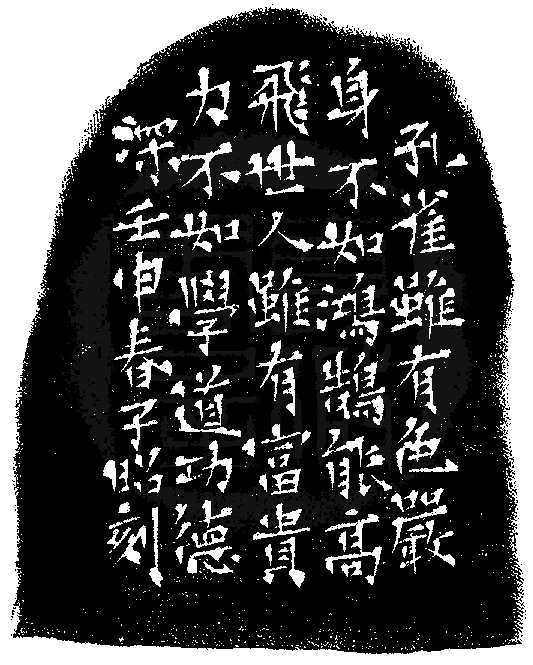 孔雀雖有色嚴
身不如鴻鵠能高
飛世人雖有富貴
力不如學道功德
深壬申春子昭刻